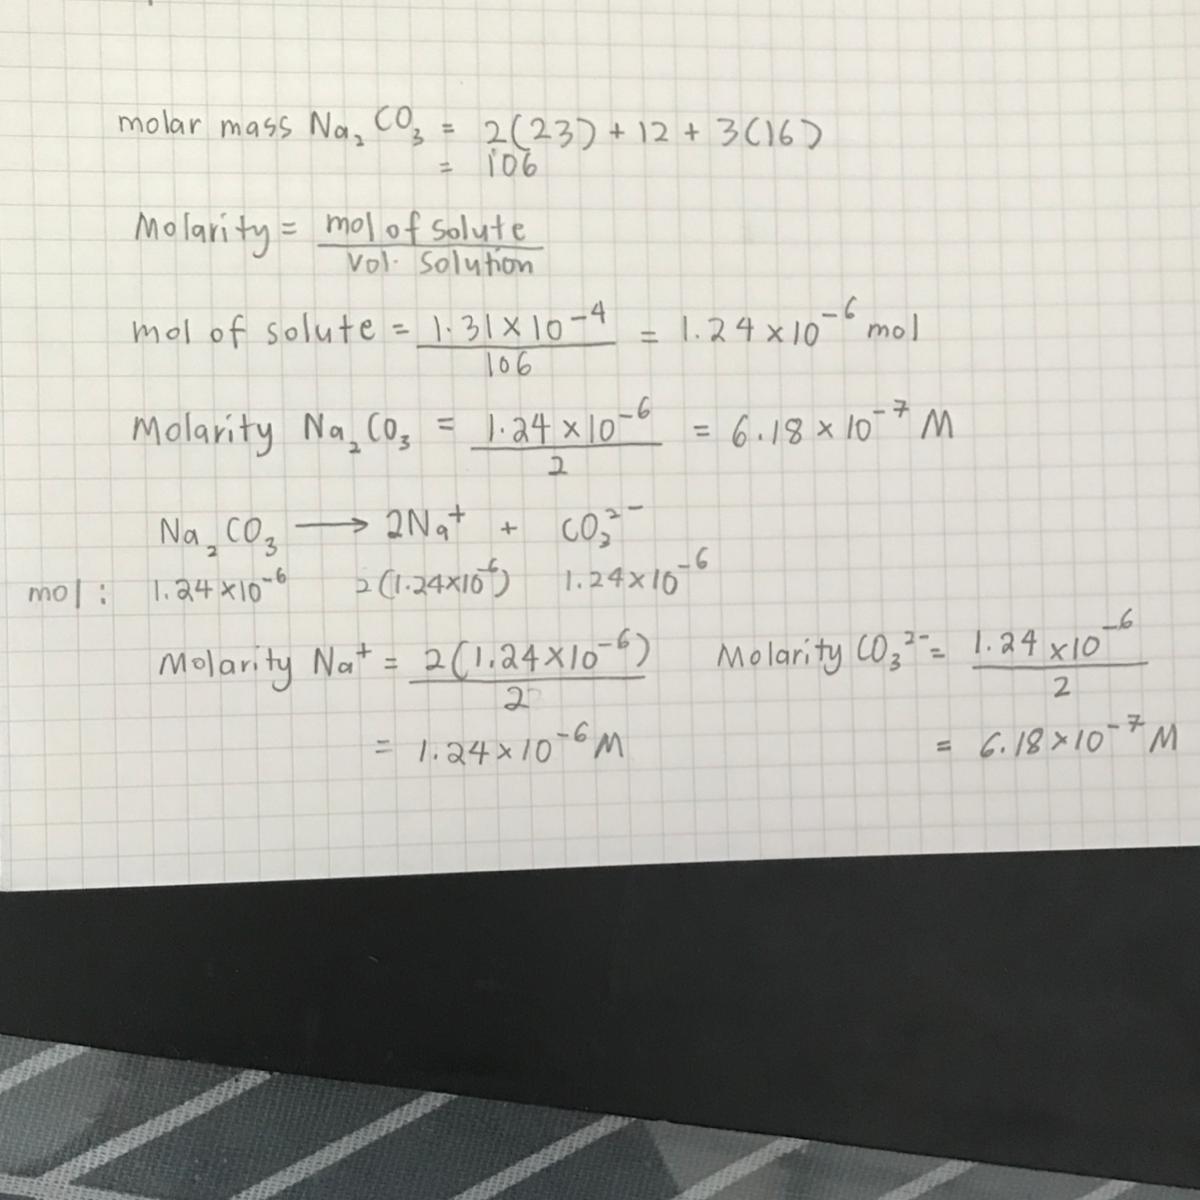 molar mass Na₂CO₃ = 2(23) + 12 + 3(16)
= 106
Molarity = mol of solute / vol. solution
mol of solute = 1.31 × 10⁻⁴ / 106 = 1.24 × 10⁻⁶ mol
Molarity Na₂CO₃ = 1.24 × 10⁻⁶ / 2 = 6.18 × 10⁻⁷ M
Na₂CO₃ ⟶ 2Na⁺ + CO₃²⁻
mol: 1.24 × 10⁻⁶ 2(1.24 × 10⁻⁶) 1.24 × 10⁻⁶
Molarity Na⁺ = 2(1.24 × 10⁻⁶) / 2 Molarity CO₃²⁻ = 1.24 × 10⁻⁶ / 2
= 1.24 × 10⁻⁶ M = 6.18 × 10⁻⁷ M